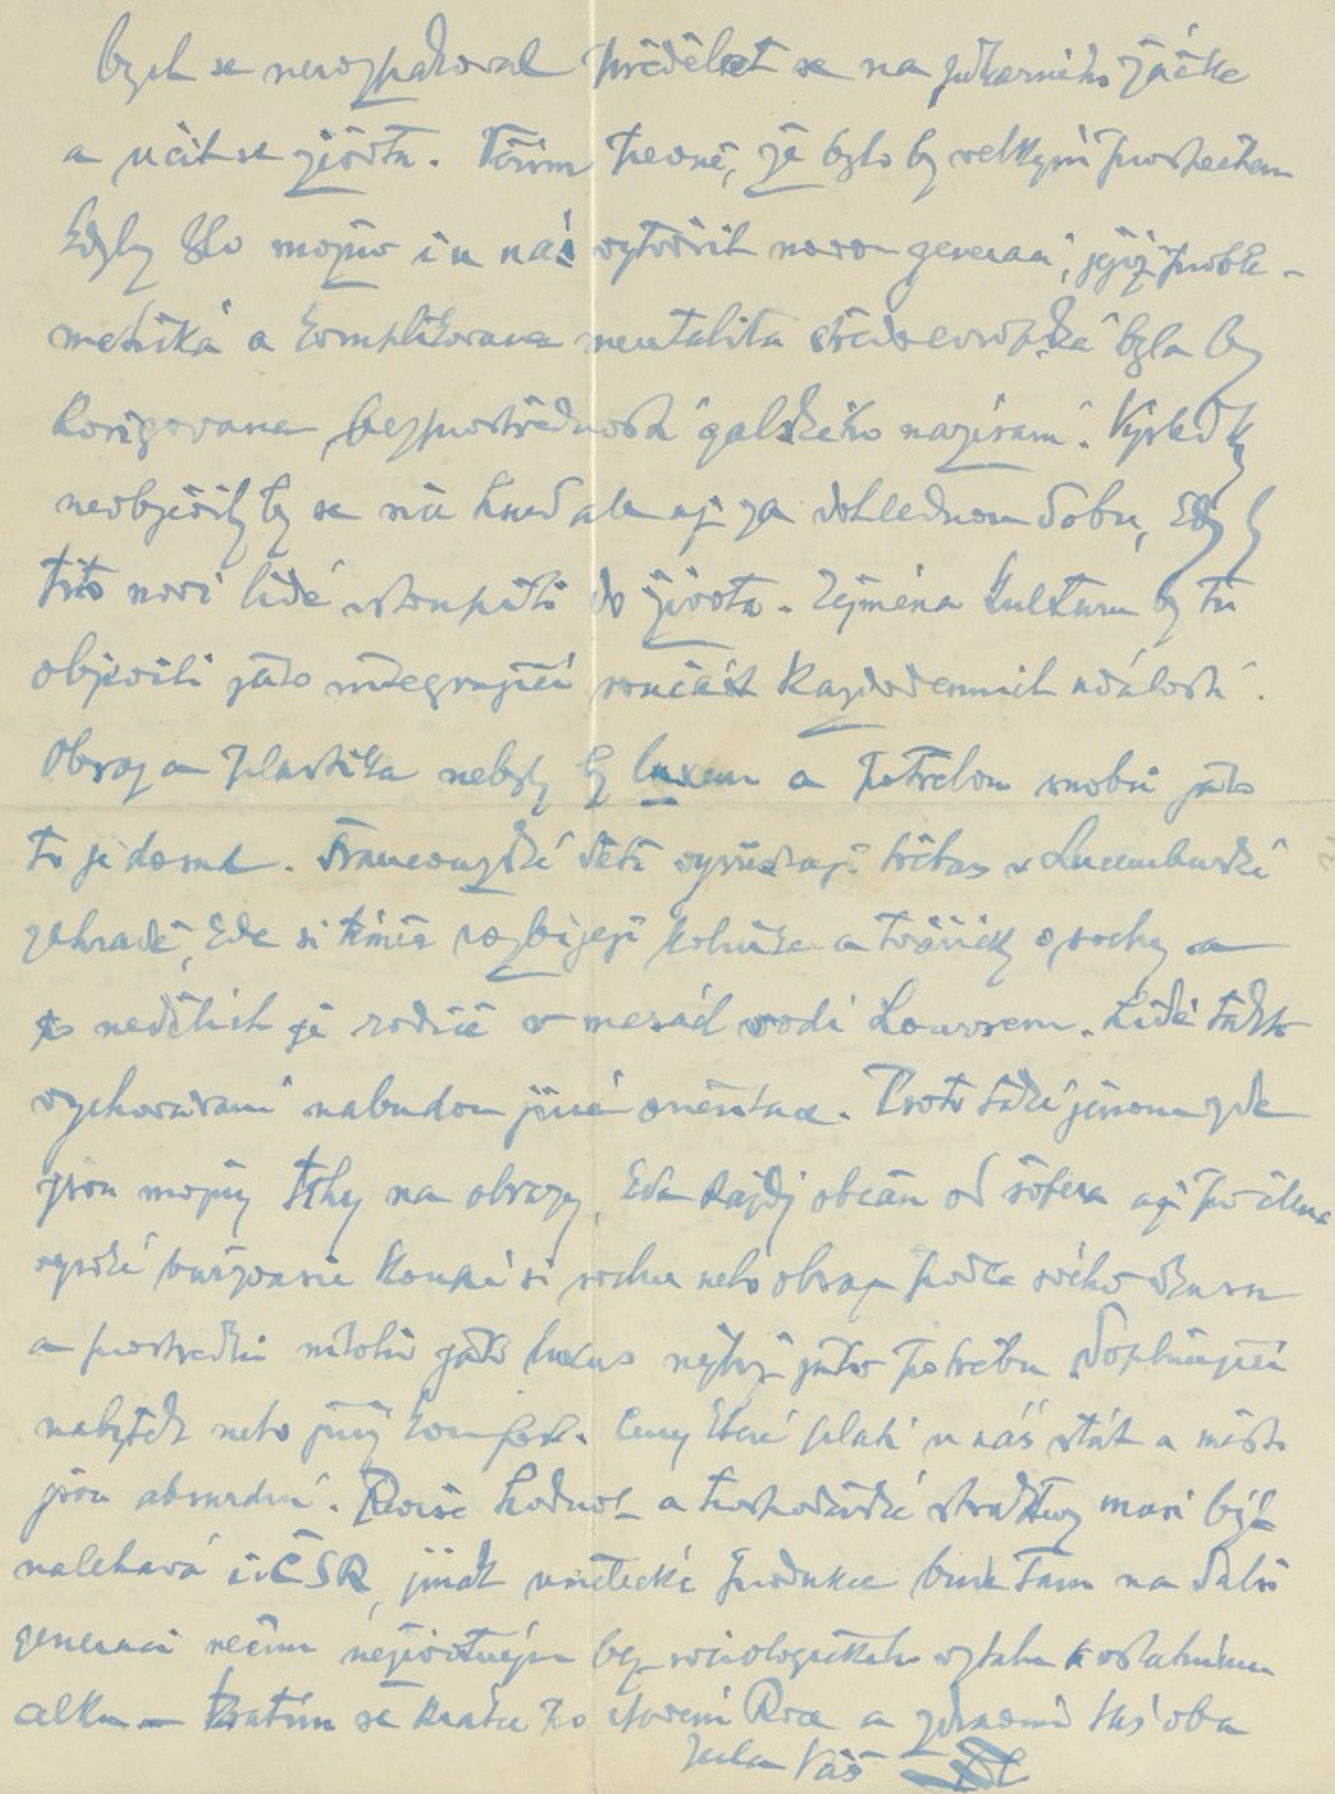 bych se nerozpakoval předělat se na žáčka
a učit se životu. Věřím pevně, že bylo by velkým prospěchem
kdyby šlo možno i u nás vytvořit novou generaci, jejíž proble-
matická a komplikovaná mentalita středoevropská byla by
korigovaná bezprostředností galského nazírání. Výsledky
neobjevily by se na hned ale až za dohlednou dobu, kdy
tito noví lidé vstoupěti do života. Zejména kulturu by tu
objevili jako integrující součást každodenních událostí.
Obraz a plastika nebyly by luxem a potřebou snobů jako
to je doma. Francouzské děti vyrůstají třebas v Lucemburské
zahradě, kde si téměř rozbíjejí kolínka a tvářičky o sochy a
po nedělích je rodiče v mládí vodí Louvrem. Lidé takto
vychovávaní nabudou jiné orientace. Proto také jenom zde
jsou možny trhy na obrazy, kde každý občan od šoféra až po člena
vysoké buržoasie koupí si sochu nebo obraz podle svého vkusu
a prostředků nikoliv jako luxus nýbrž jako potřebu doplňující
nábytek nebo jiný komfort. Ceny které platí u nás stát a město
jsou absurdní. Revise hodnot a hospodářské struktury musí být
naléhavá i v ČSR, jinak umělecká produkce bude tam na další
generaci něčím neživotným bez sociologického vztahu k ostatnímu
celku — Zatím se vracím ke čtení a zdravím Vás oba
Váš